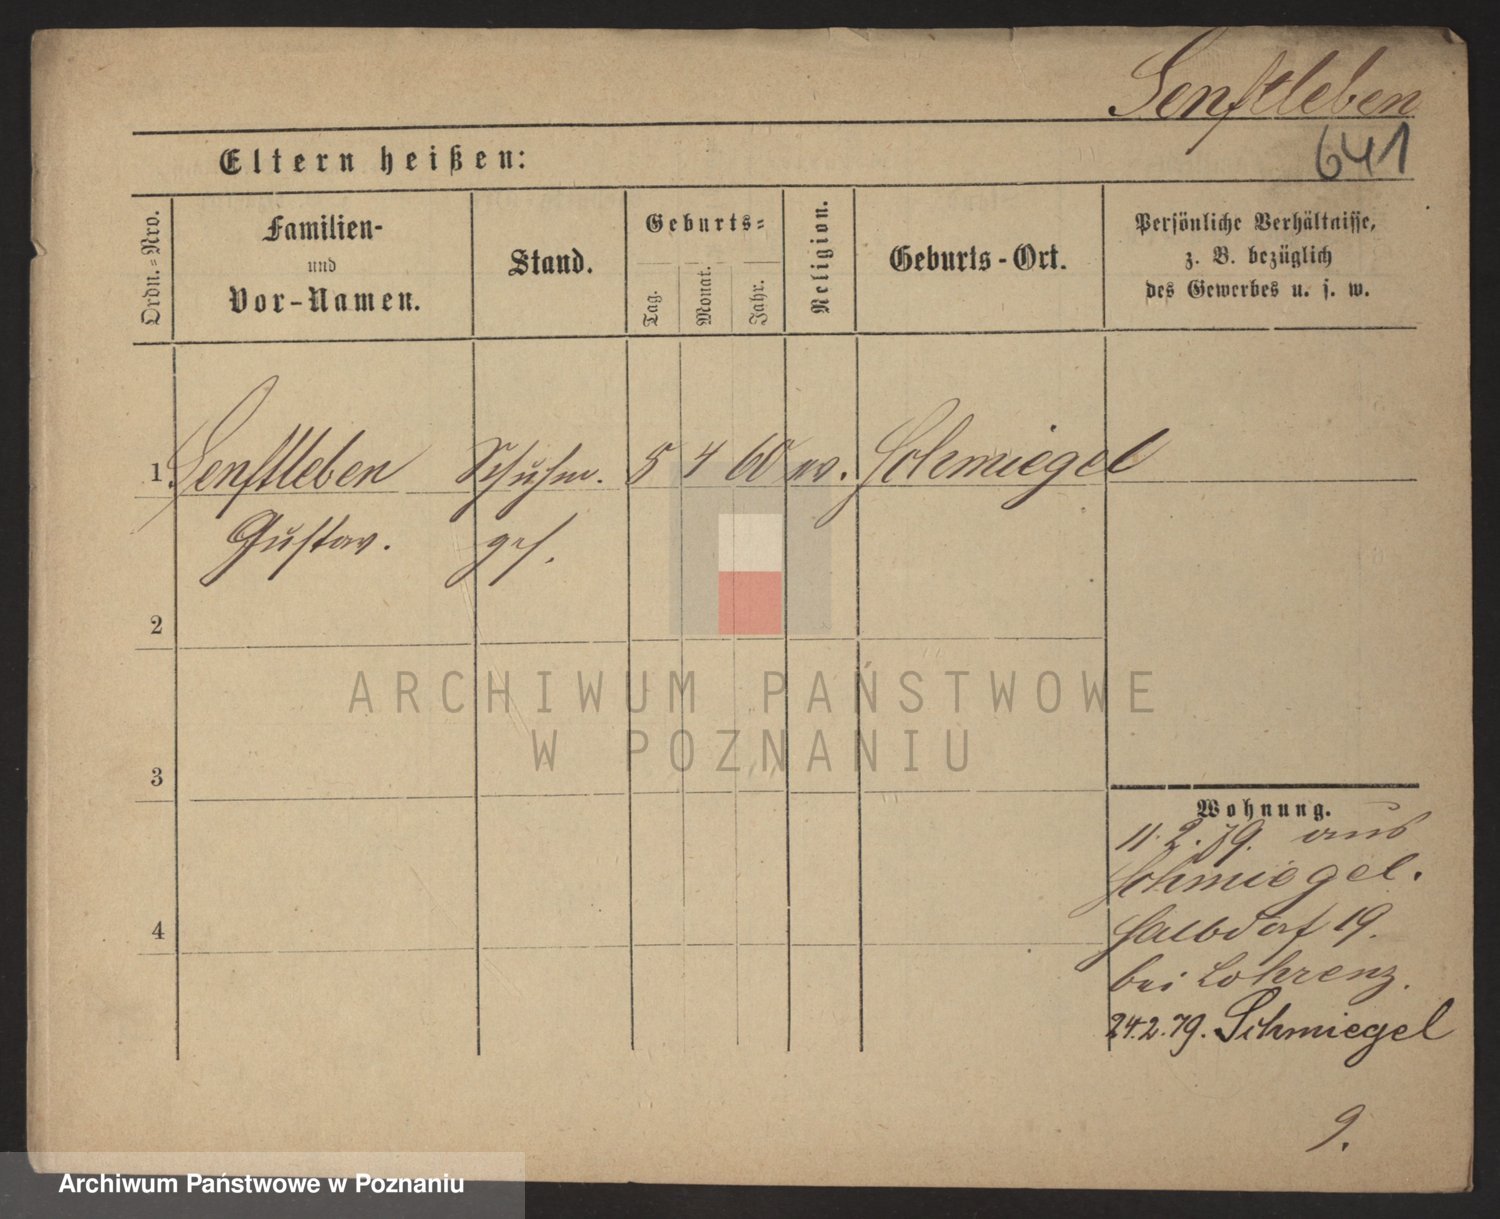 Senftleben
641
Eltern heißen:
Ordn.-Nro.
Familien-
und
Vor-Namen.
Stand.
Geburts-
Tag.
Monat.
Jahr.
Religion.
Geburts-Ort.
Persönliche Verhältnisse,
z. B. bezüglich
des Gewerbes u. s. w.
1 Senftleben Schuhm. 5 4 60 ev. Schmiegel
Gustav. ges.
2
3
4
Wohnung.
11.2.79. aus
Schmiegel.
Halbdorf 19.
bei Lohrenz.
24.2.79. Schmiegel
9.
ARCHIWUM PAŃSTWOWE
W POZNANIU
Archiwum Państwowe w Poznaniu